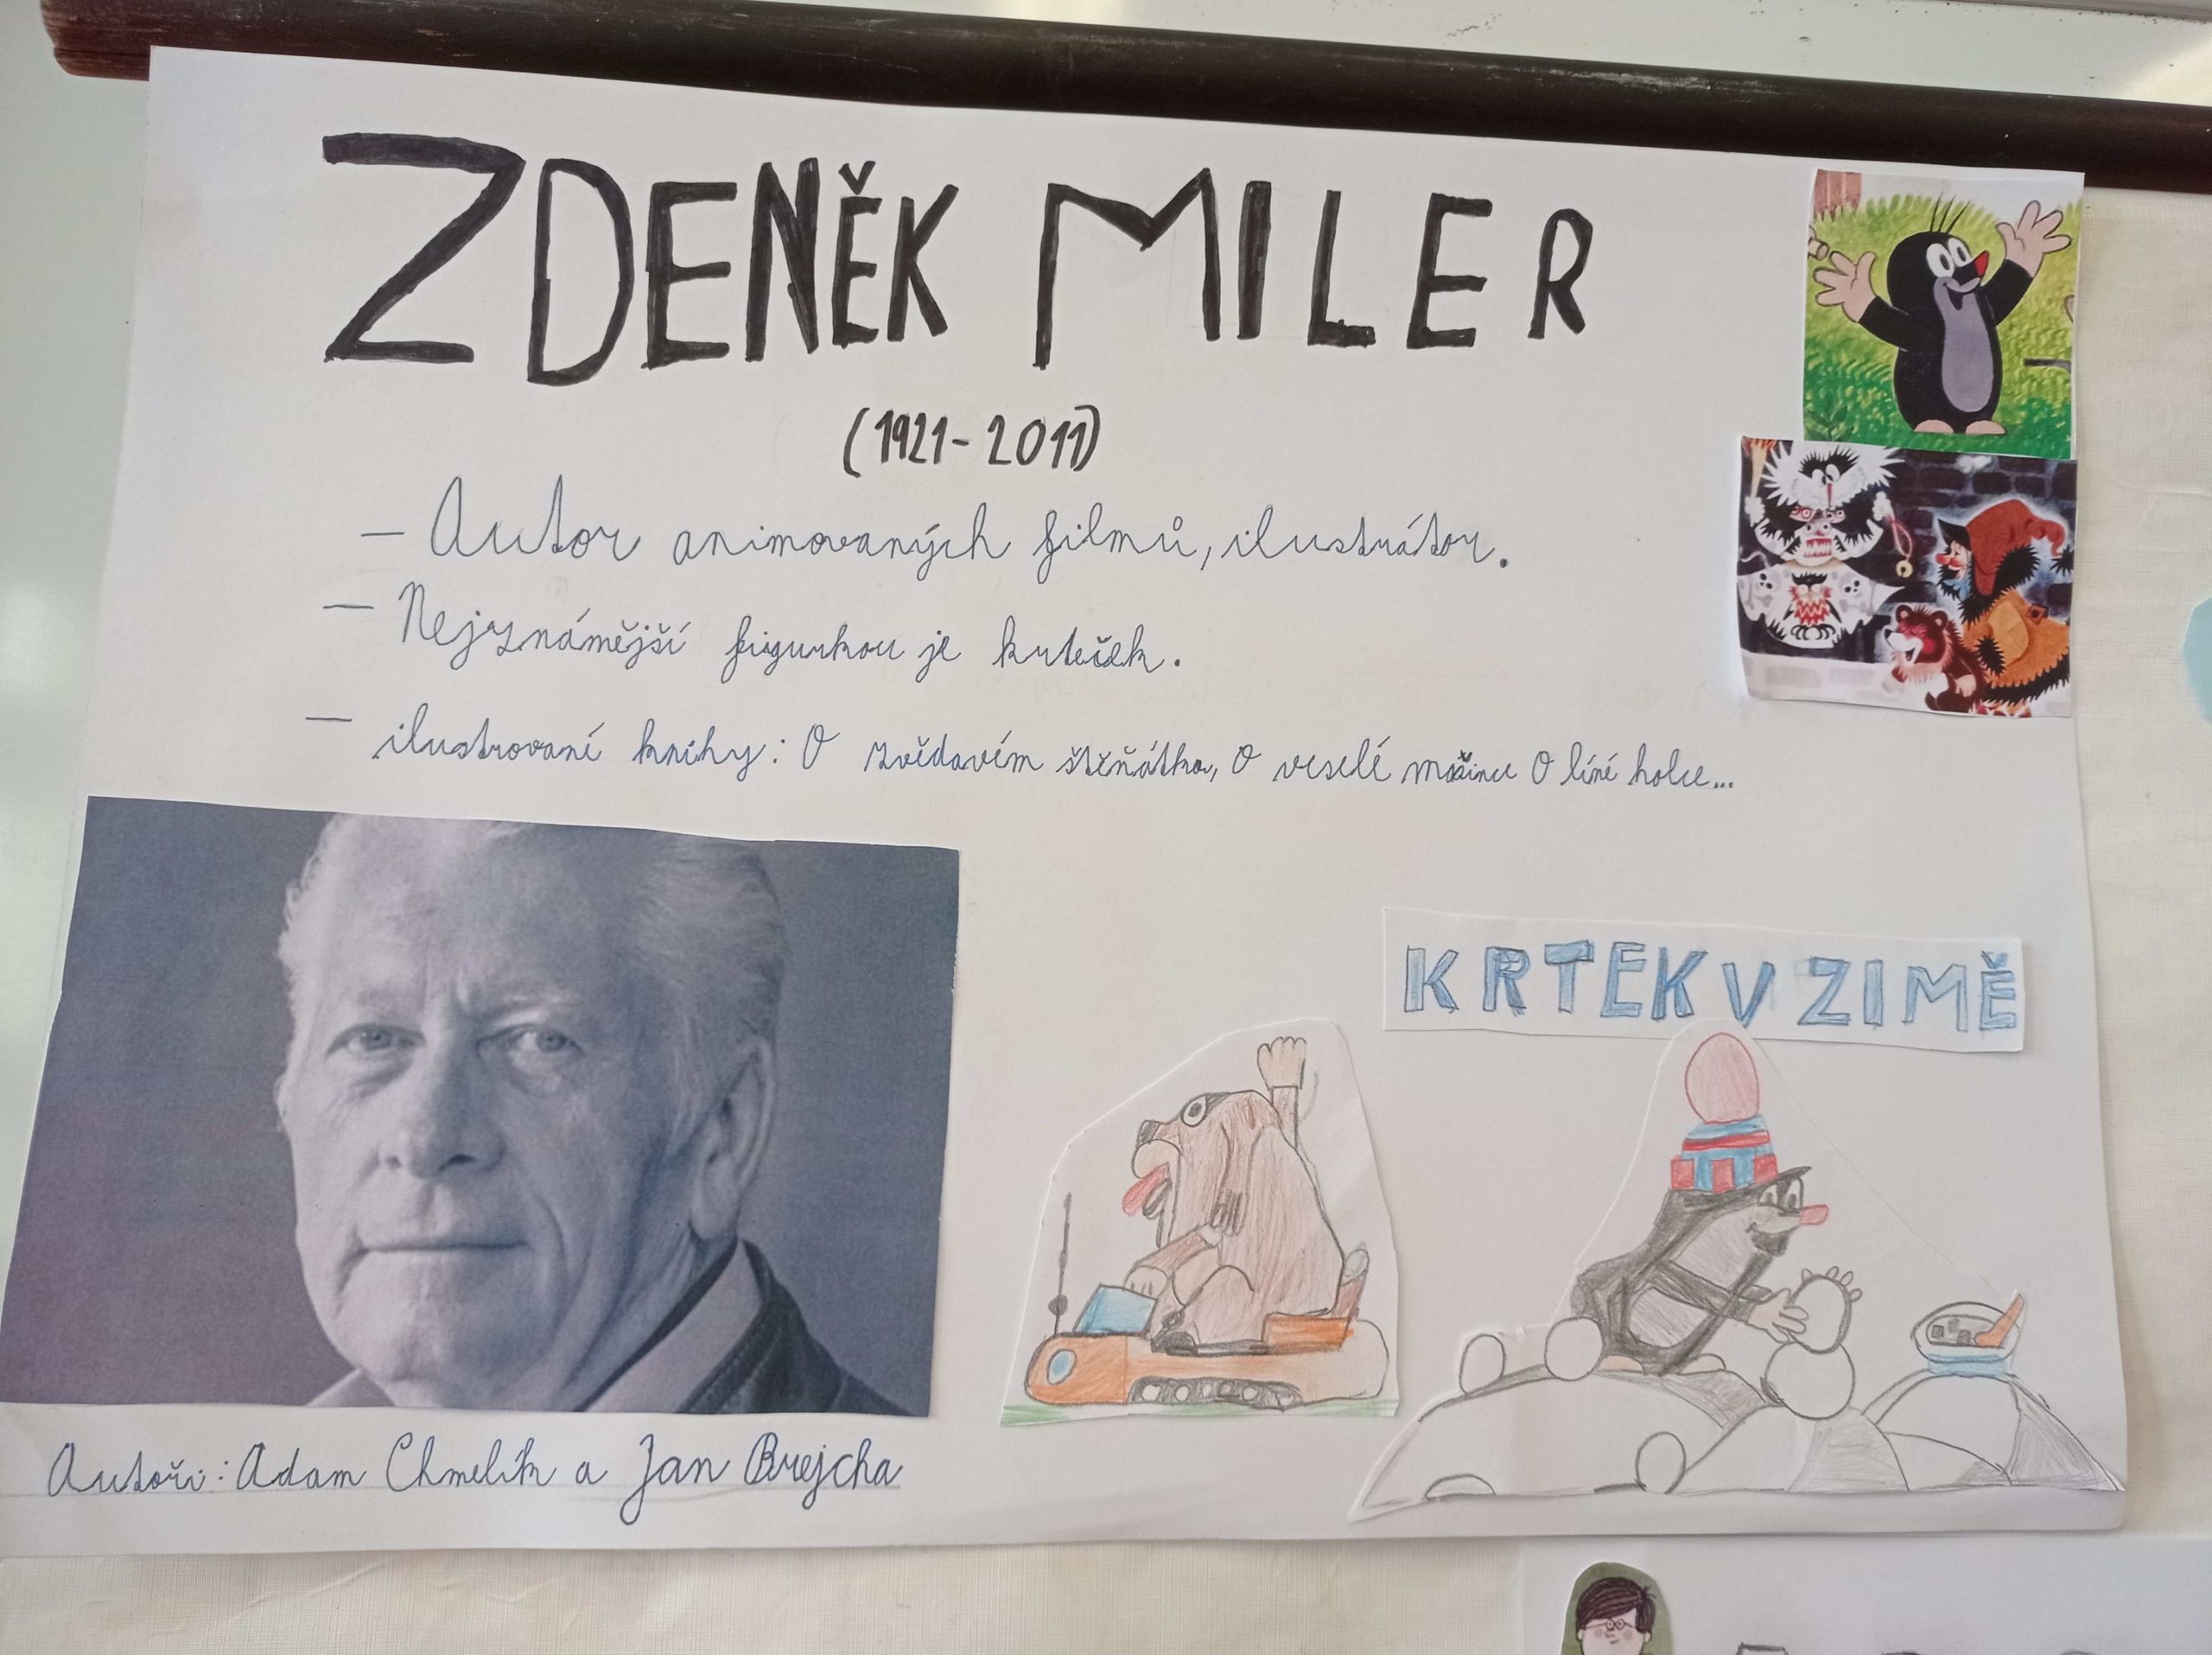 ZDENĚK MILER
(1921-2011)
— Autor animovaných filmů, ilustrátor.
— Nejznámější figurkou je krteček.
— ilustrované knihy: O zvědavém štěňátku, O veselé mašince O líné holce...
KRTEK V ZIMĚ
Autoři: Adam Chmelík a Jan Brejcha